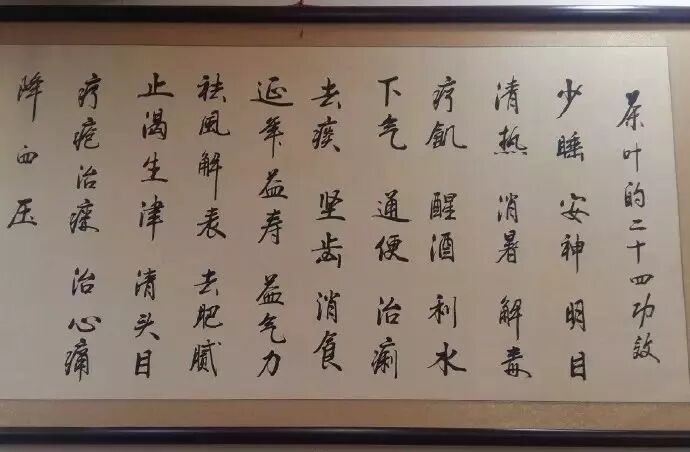 茶叶的二十四功效
少睡 安神 明目
清热 消暑 解毒
疗饥 醒酒 利水
下气 通便 治痢
去痰 坚齿 消食
延年益寿 益气力
祛風解表 去肥腻
止渴生津 清头目
疗疮治瘘 治心痛
降血压